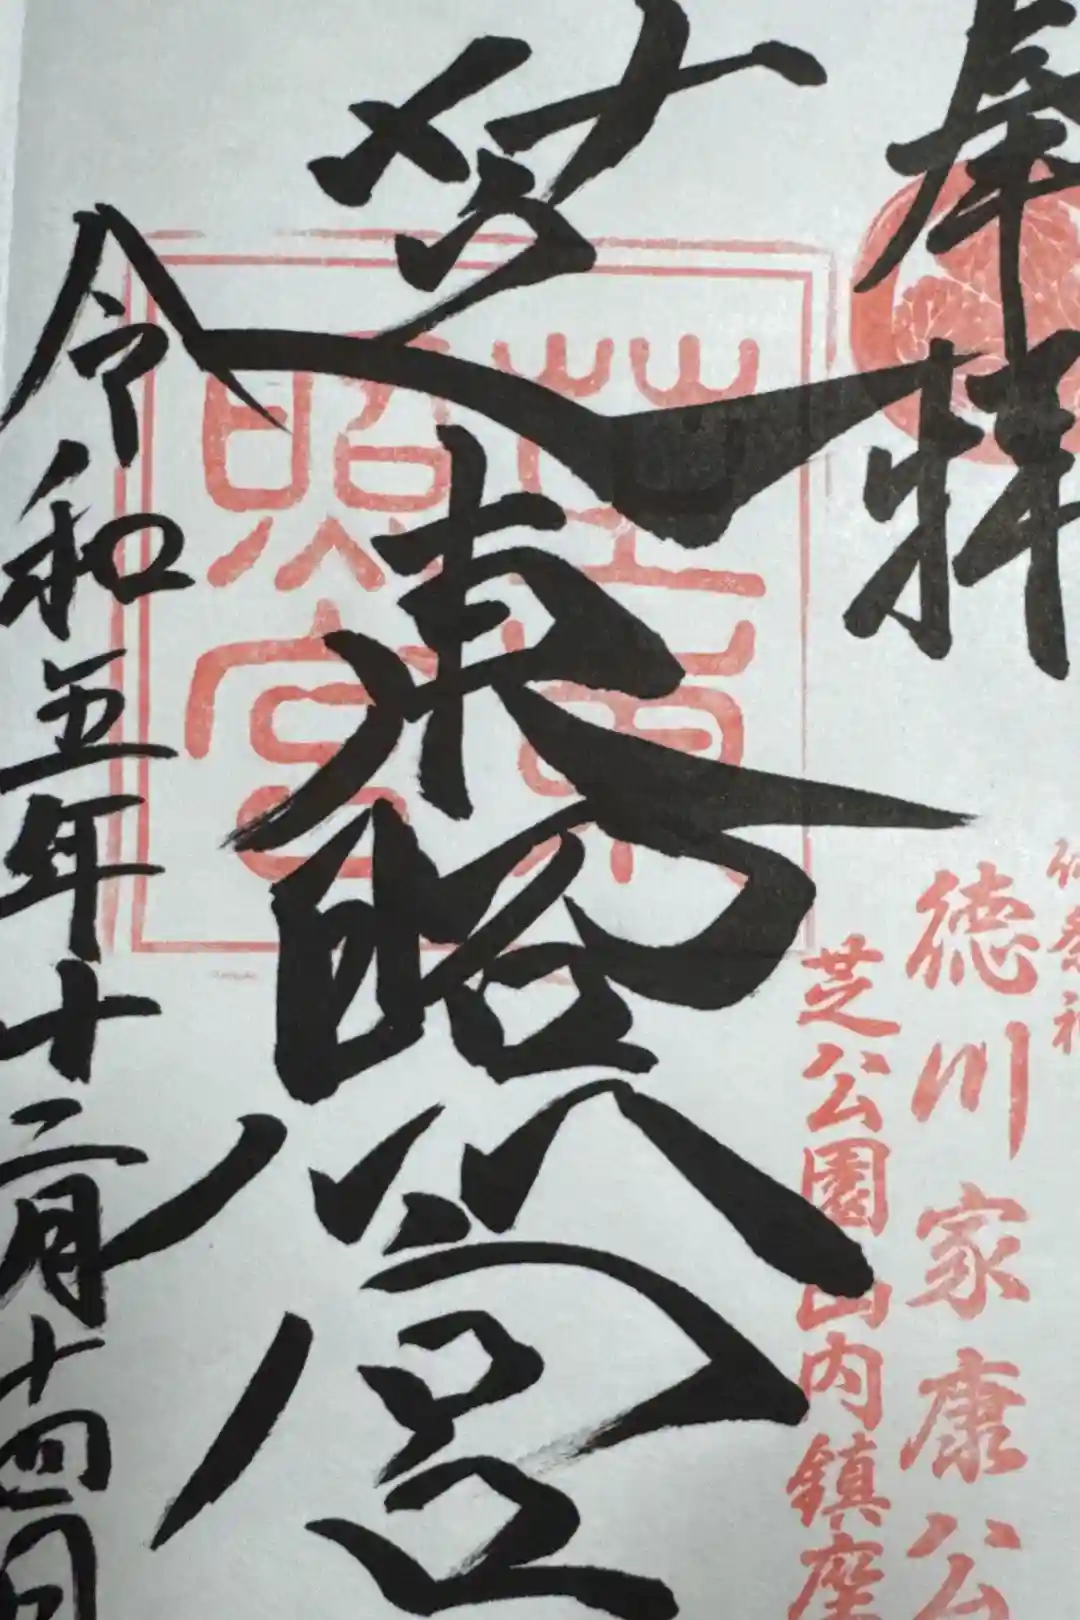 奉拝
御祭神
徳川家康公
芝公園山内鎮座
芝東照宮
芝東照宮
令和五年十二月十四日